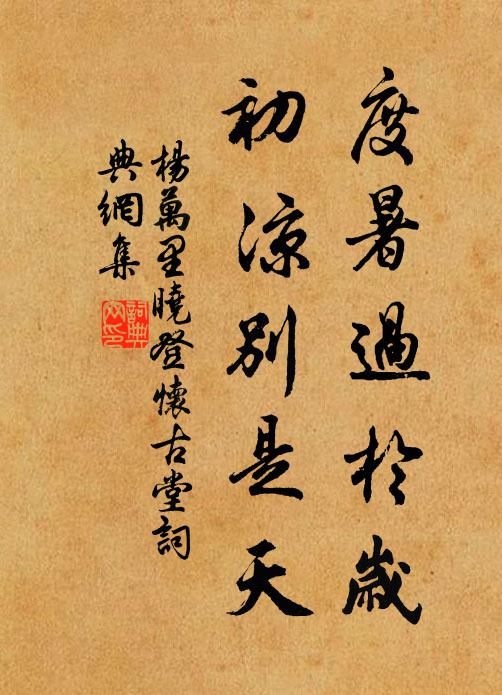 度暑過於歲
初涼別是天
楊萬里曉登懷古堂詞
典網集
詞典网印